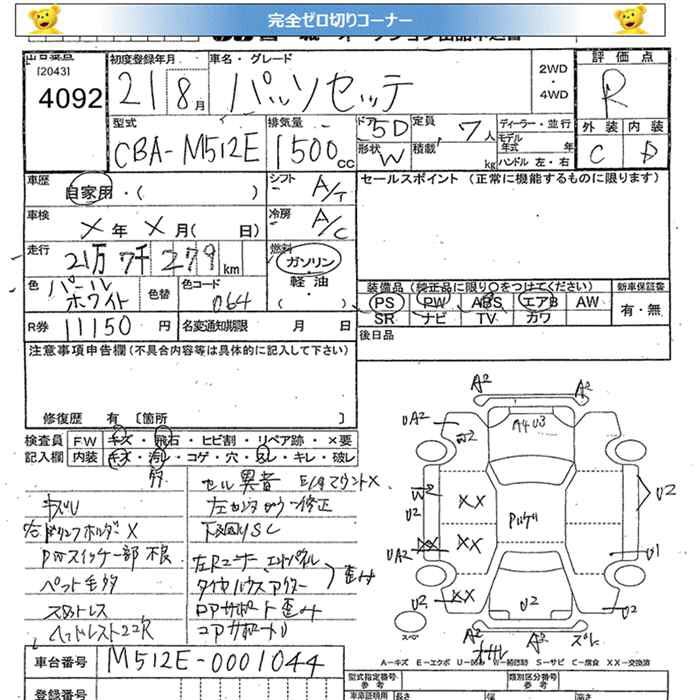 完全ゼロ切りコーナー
出品番号 [2043] 4092
初度登録年月 21 8月
車名・グレード パッソセッテ
2WD ・ 4WD
評価点 R
外装 内装
C D
型式 CBA-M512E
排気量 1500cc
ドア 5D
定員 7人
形状 W
積載 kg
ディーラー・並行
モデル年式 年
ハンドル 左・右
車歴 自家用・( )
シフト A/T
セールスポイント (正常に機能するものに限ります)
車検 X年X月( 日)
冷房 A/C
走行 21万7千279km
燃料 ガソリン 軽油・( )
色 パールホワイト
色替
色コード 064
装備品 (純正品に限り○をつけてください)
新車保証書
PS PW ABS エアB AW 有・無
SR ナビ TV カワ
R券 11150円
名変通知期限 月 日
後日品
注意事項申告欄(不具合内容等は具体的に記入して下さい)
修復歴 有 [箇所 ]
検査員 FW キズ・飛石・ヒビ割・リペア跡・×要
記入欄 内装 キズ・汚レ・コゲ・穴・スレ・キレ・破レ
セル異音 Egマウント×
左センターピラー修正
下廻りSC
ドリンクホルダー×
PWスイッチ一部不良
ペット毛多
左Rコーナー、エンドパネル
タイヤハウスアウター
歪み
ロアサポート歪み
コアサポートU
ヘッドレスト2コ欠
A2 A2
UA2 U2 A4 U3
W2 XX U2
U2 Pルーフ
UA2 XX XX U1
U2 XX U2 U2
スペア
A2 A3
A-キズ E-エクボ U-凹み W-補修跡 S-サビ C-腐食 XX-交換済
車台番号 M512E-0001044
型式指定番号 参考
類別区分番号 参考
登録番号
車庫証明用 長さ 幅 高さ